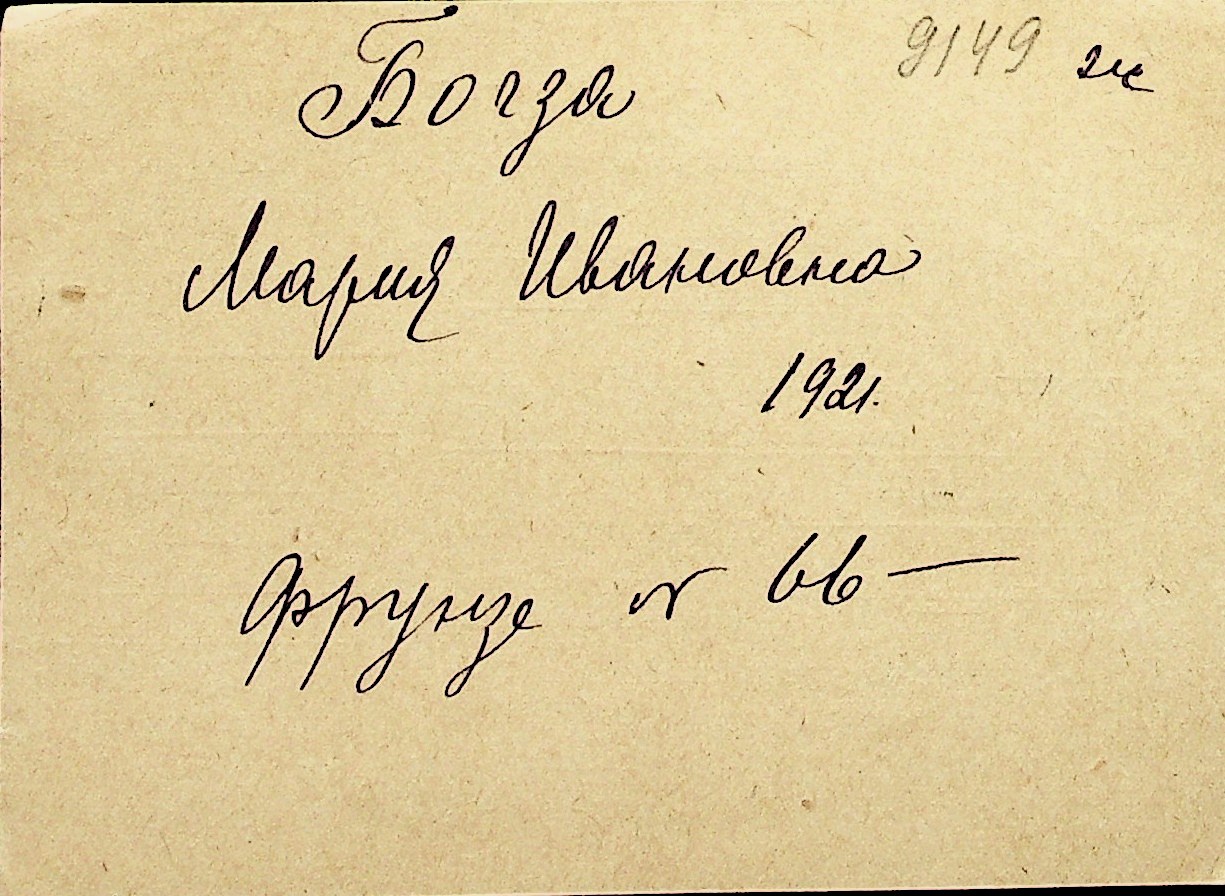 9149 ж
Богза
Мария Ивановна
1921.
Фрунзе № 66 —